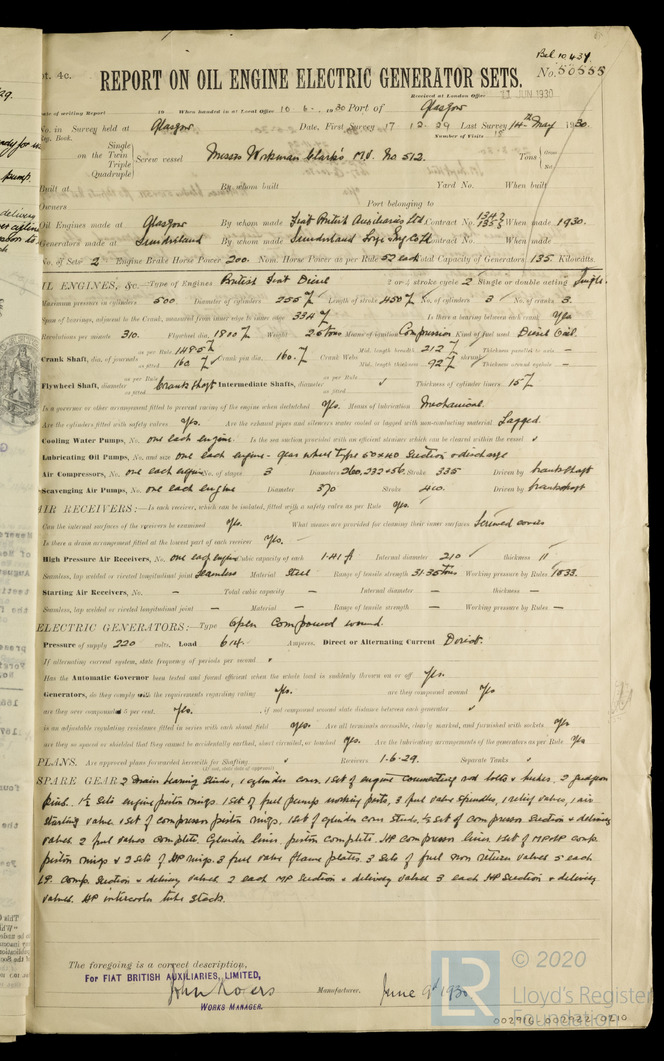 Bel. 10434
pt. 4c. REPORT ON OIL ENGINE ELECTRIC GENERATOR SETS. No. 50555
Received at London Office 11 JUN 1930
Date of writing Report 19 When handed in at Local Office 10 6 - 1930 Port of Glasgow
No. in Survey held at Glasgow Date, First Survey 17 12-29 Last Survey 14th May 1930
Reg. Book. Number of Visits 15
Single
on the Twin Screw vessel Messrs Workman Clark's M.V. No 512. Tons Gross
Triple Net
Quadruple
Built at By whom built Yard No. When built
Owners Port belonging to
Oil Engines made at Glasgow By whom made Fiat British Auxiliaries Ltd Contract No. When made 1930.
Generators made at Sunderland By whom made Sunderland Forge Eng Co Ltd Contract No. When made
No. of Sets 2 Engine Brake Horse Power 200. Nom. Horse Power as per Rule 52 each Total Capacity of Generators 135 Kilowatts.
OIL ENGINES, &c.—Type of Engines British Fiat Diesel 2 or 4 stroke cycle 2 Single or double acting Single
Maximum pressure in cylinders 500 Diameter of cylinders 255 Length of stroke 450 No. of cylinders 3 No. of cranks 3.
Span of bearings, adjacent to the Crank, measured from inner edge to inner edge 334 Is there a bearing between each crank Yes
Revolutions per minute 310. Flywheel dia. 1800 Weight Means of ignition Compression Kind of fuel used Diesel Oil.
Crank Shaft, dia. of journals as per Rule 148.5 as fitted 160 Crank pin dia. 160. Crank Webs Mid. length breadth 212 Mid. length thickness 92 shrunk Thickness parallel to axis — Thickness around eyehole —
Flywheel Shaft, diameter as per Rule as fitted Crankshaft Intermediate Shafts, diameter as per Rule as fitted Thickness of cylinder liners 15
Is a governor or other arrangement fitted to prevent racing of the engine when declutched Yes. Means of lubrication Mechanical.
Are the cylinders fitted with safety valves Yes. Are the exhaust pipes and silencers water cooled or lagged with non-conducting material Lagged.
Cooling Water Pumps, No. one each engine. Is the sea suction provided with an efficient strainer which can be cleared within the vessel
Lubricating Oil Pumps, No. and size one each engine - gear wheel type 50x40 Suction & discharge
Air Compressors, No. one each engine No. of stages 3 Diameters 260, 232 & 56. Stroke 335 Driven by Crankshaft
Scavenging Air Pumps, No. one each engine Diameter 370 Stroke 400. Driven by crankshaft
AIR RECEIVERS:—Is each receiver, which can be isolated, fitted with a safety valve as per Rule Yes.
Can the internal surfaces of the receivers be examined Yes. What means are provided for cleaning their inner surfaces Screwed covers
Is there a drain arrangement fitted at the lowest part of each receiver Yes.
High Pressure Air Receivers, No. one each engine Cubic capacity of each 1.41 ft Internal diameter 210 thickness 11
Seamless, lap welded or riveted longitudinal joint Seamless Material Steel Range of tensile strength 31-35 tons Working pressure by Rules 1533.
Starting Air Receivers, No. — Total cubic capacity — Internal diameter — thickness —
Seamless, lap welded or riveted longitudinal joint — Material — Range of tensile strength — Working pressure by Rules —
ELECTRIC GENERATORS:—Type Open Compound wound.
Pressure of supply 220 volts. Load 614. Amperes. Direct or Alternating Current Direct.
If alternating current system, state frequency of periods per second
Has the Automatic Governor been tested and found efficient when the whole load is suddenly thrown on or off Yes.
Generators, do they comply with the requirements regarding rating Yes. are they compound wound Yes
are they over compounded 5 per cent. Yes. , if not compound wound state distance between each generator
is an adjustable regulating resistance fitted in series with each shunt field Yes. Are all terminals accessible, clearly marked, and furnished with sockets Yes
are they so spaced or shielded that they cannot be accidentally earthed, short circuited, or touched Yes. Are the lubricating arrangements of the generators as per Rule Yes
PLANS. Are approved plans forwarded herewith for Shafting Receivers 1-6-29. Separate Tanks
(If not, state date of approval)
SPARE GEAR 2 Main bearing Studs, 1 cylinder cover. 1 set of engine connecting rod bolts & bushes. 2 gudgeon
pins. 1½ sets engine piston rings. 1 set of fuel pumps working parts, 3 fuel valve spindles, 1 relief valve, 1 air
starting valve. 1 set of compressor piston rings. 1 set of cylinder cover studs. ½ set of compressor suction & delivery
valves 2 fuel valves complete. Cylinder liner. piston complete. HP compressor liner. 1 set of MP & LP comp.
piston rings & 2 sets of HP rings. 3 fuel valve flame plates. 3 sets of fuel non return valves 5 each
LP. comp. Suction & delivery valves. 2 each MP suction & delivery valves 3 each HP suction & delivery
valves. HP intercooler tube stack.
The foregoing is a correct description,
For FIAT BRITISH AUXILIARIES, LIMITED,
Manufacturer. June 9th 1930.
WORKS MANAGER.
LR © 2020
Lloyd's Register
Foundation
002916-002922-0210